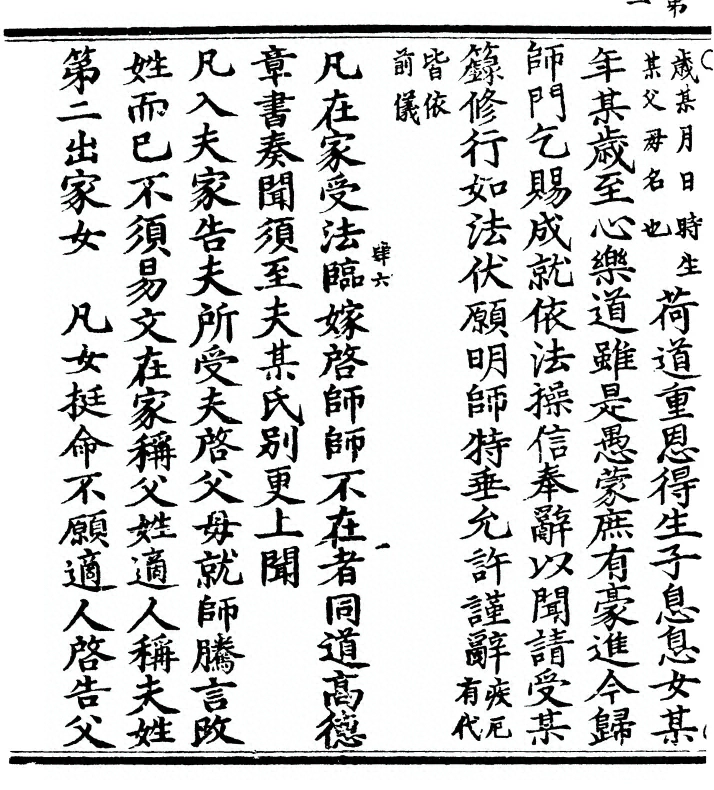 歲某月日時生某父母名也荷道重恩得生子息息女某
年某歲至心樂道雖是愚蒙庶有豪進今歸
師門乞賜成就依法操信奉辭以聞請受某
籙修行如法伏願明師特垂允許謹辭疾厄有代
皆依前儀
凡在家受法臨嫁啓師師不在者同道高德
肆六
章書奏聞須至夫某氏別更上聞
凡入夫家告夫所受夫啓父母就師騰言改
姓而已不須易文在家稱父姓適人稱夫姓
第二出家女　凡女挺命不願適人啓告父